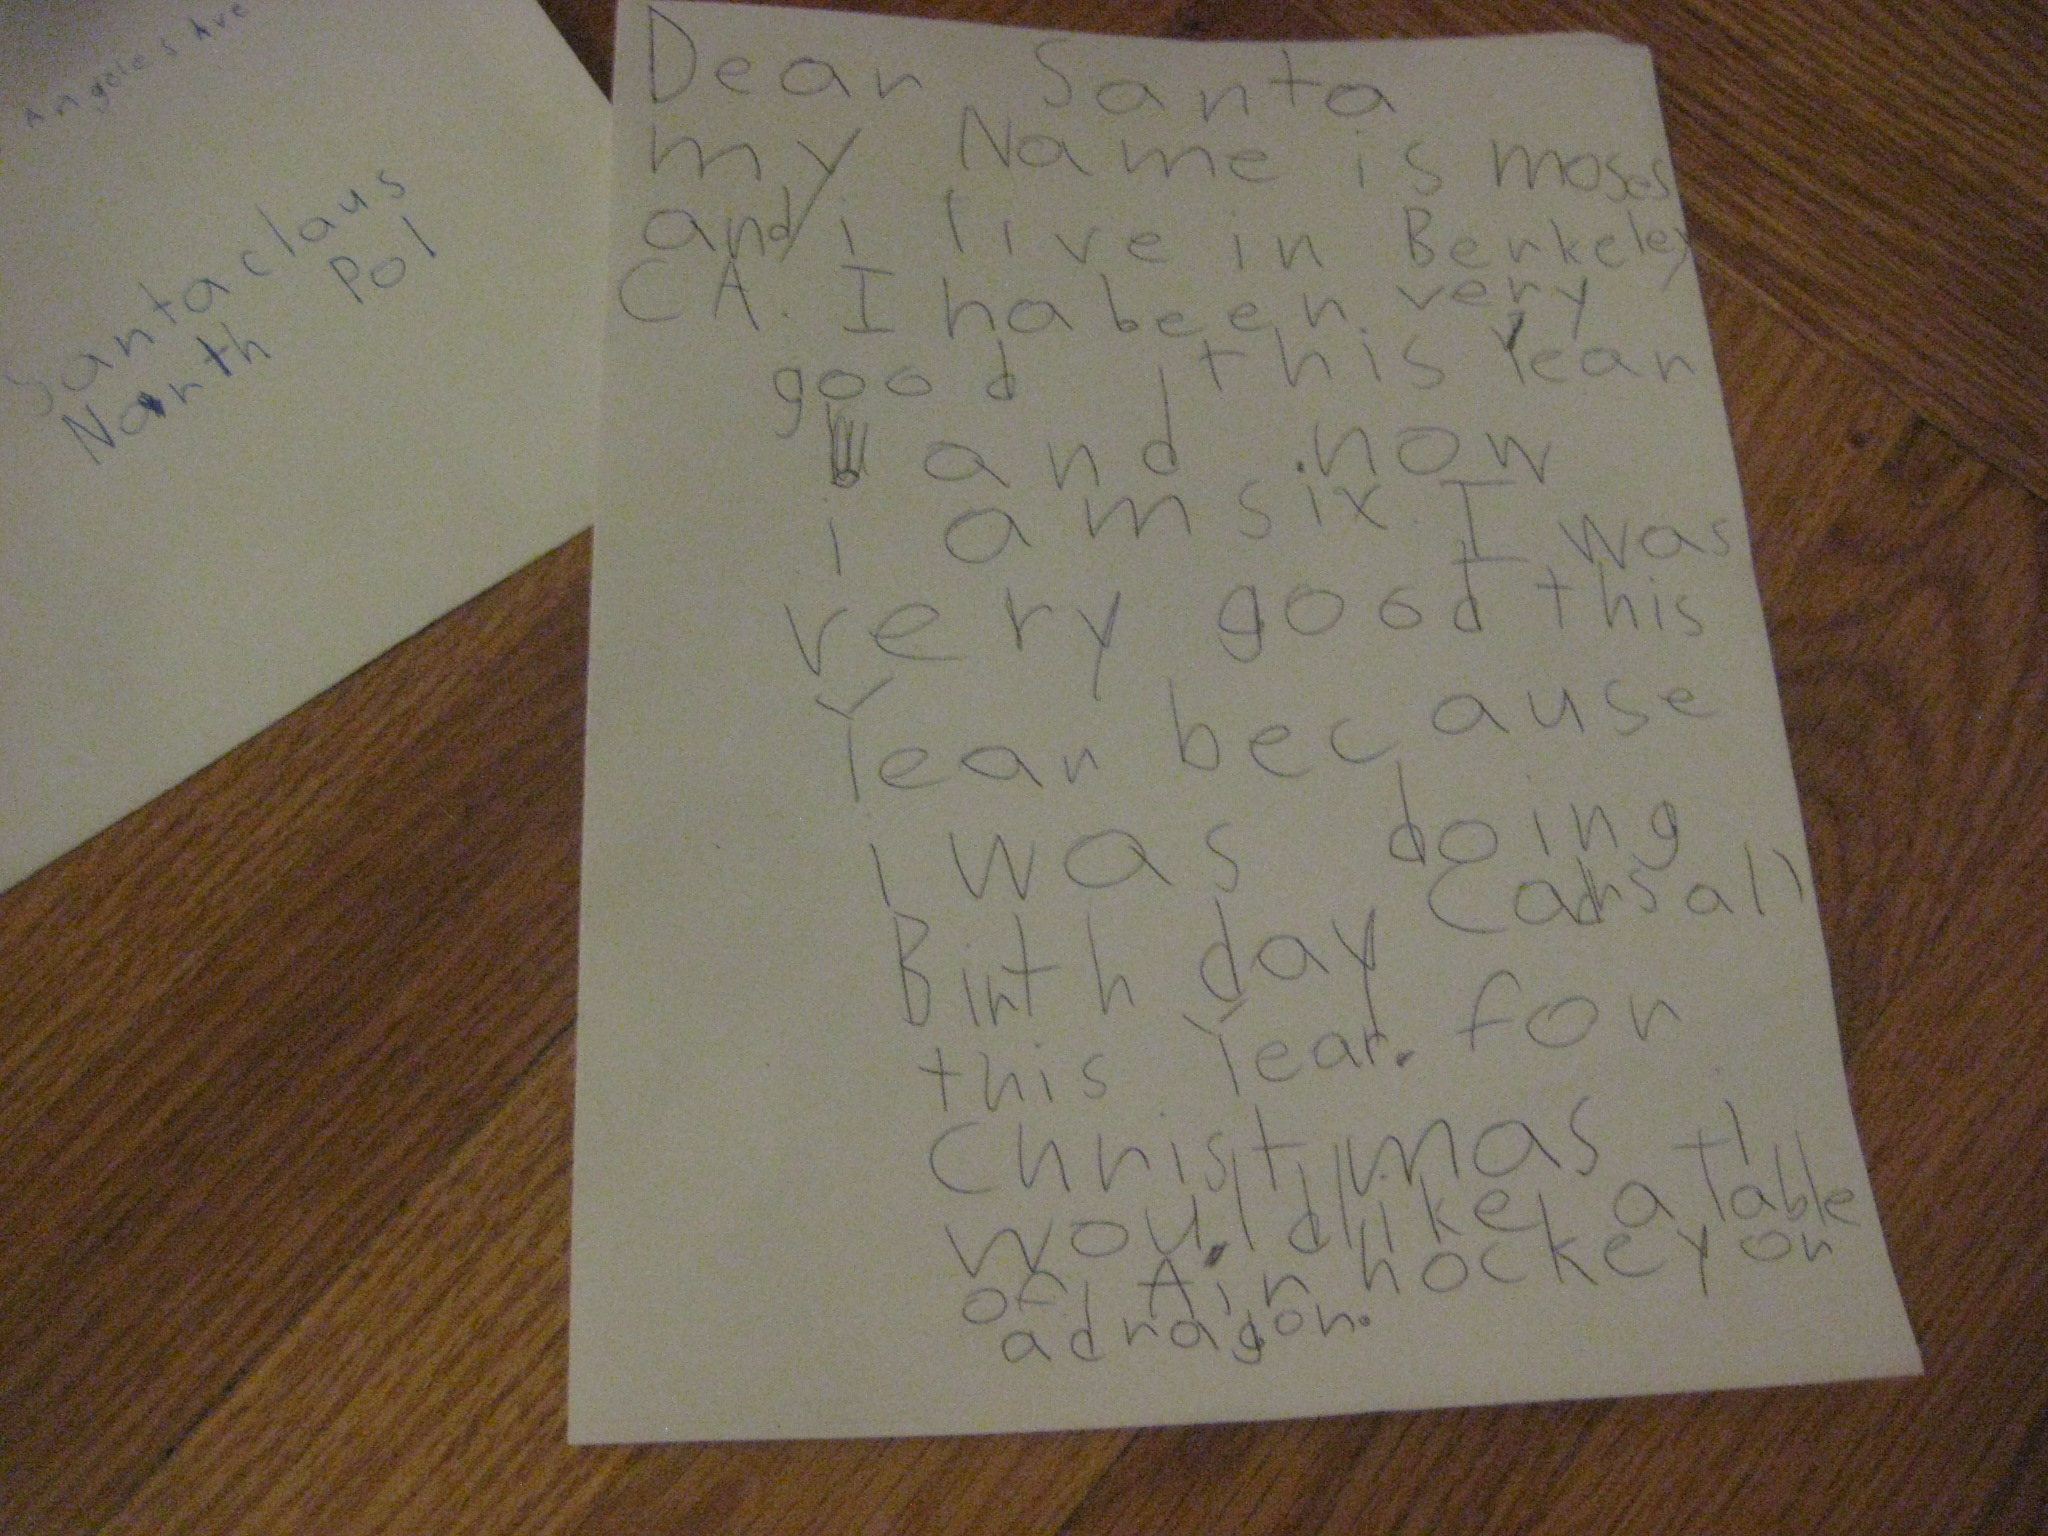 Angeles Ave
Santa claus
North Pol
Dear Santa
my Name is moses
and i live in Berkeley
CA. I ha been very
good this Year
and now
i am six. I was
very good this
Year because
i was doing
Birth day Cards all
this Year. for
Christmas I
would like a Table
of Air hockey or
a dragon.